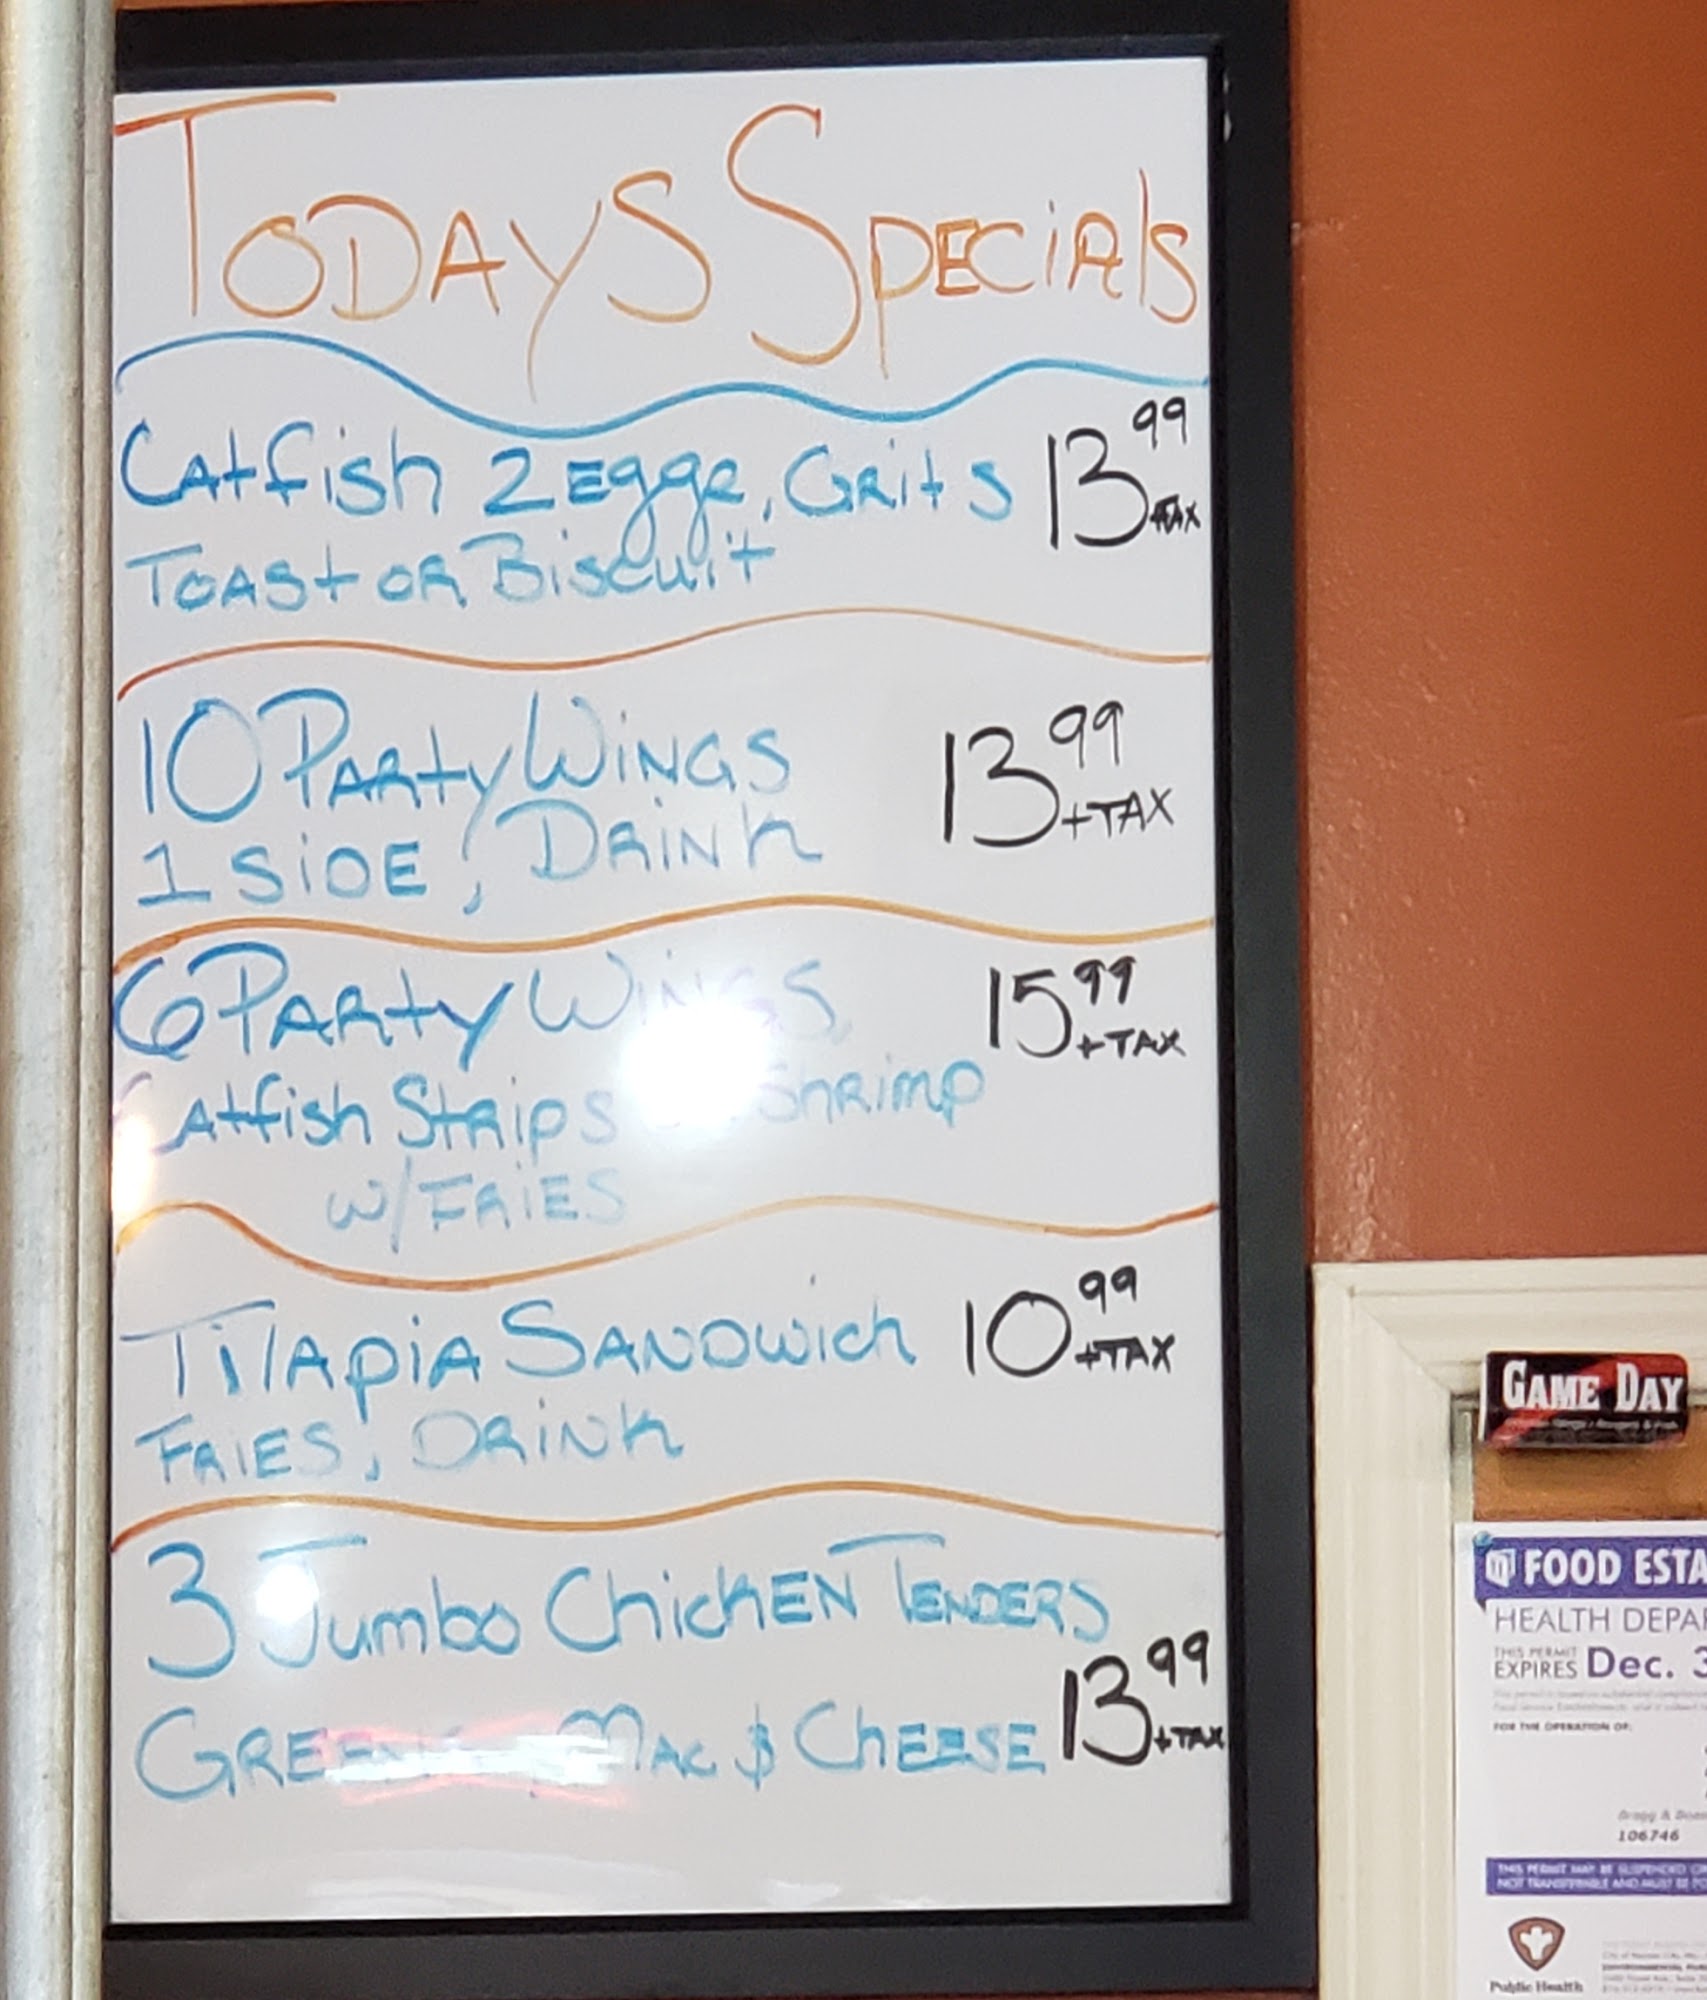 TODAYS SPECIALS
CATFISH 2 EGGS, GRITS 13.99
+TAX
TOAST OR BISCUIT
10 PARTY WINGS 13.99
+TAX
1 SIDE, DRINK
6 PARTY WINGS, 15.99
+TAX
CATFISH STRIPS Shrimp
W/FRIES
TilAPIA SANDWICH 10.99
+TAX
FRIES, DRINK
3 Jumbo CHICKEN TENDERS
13.99
GREENS, MAC $ CHEESE +TAX
GAME DAY
FOOD ESTA
HEALTH DEPAR
THIS PERMIT
EXPIRES Dec. 3
FOR THE OPERATION OF:
106746
THIS PERMIT MAY BE SUSPENDED O
NOT TRANSFERABLE AND MUST BE PO
Public Health